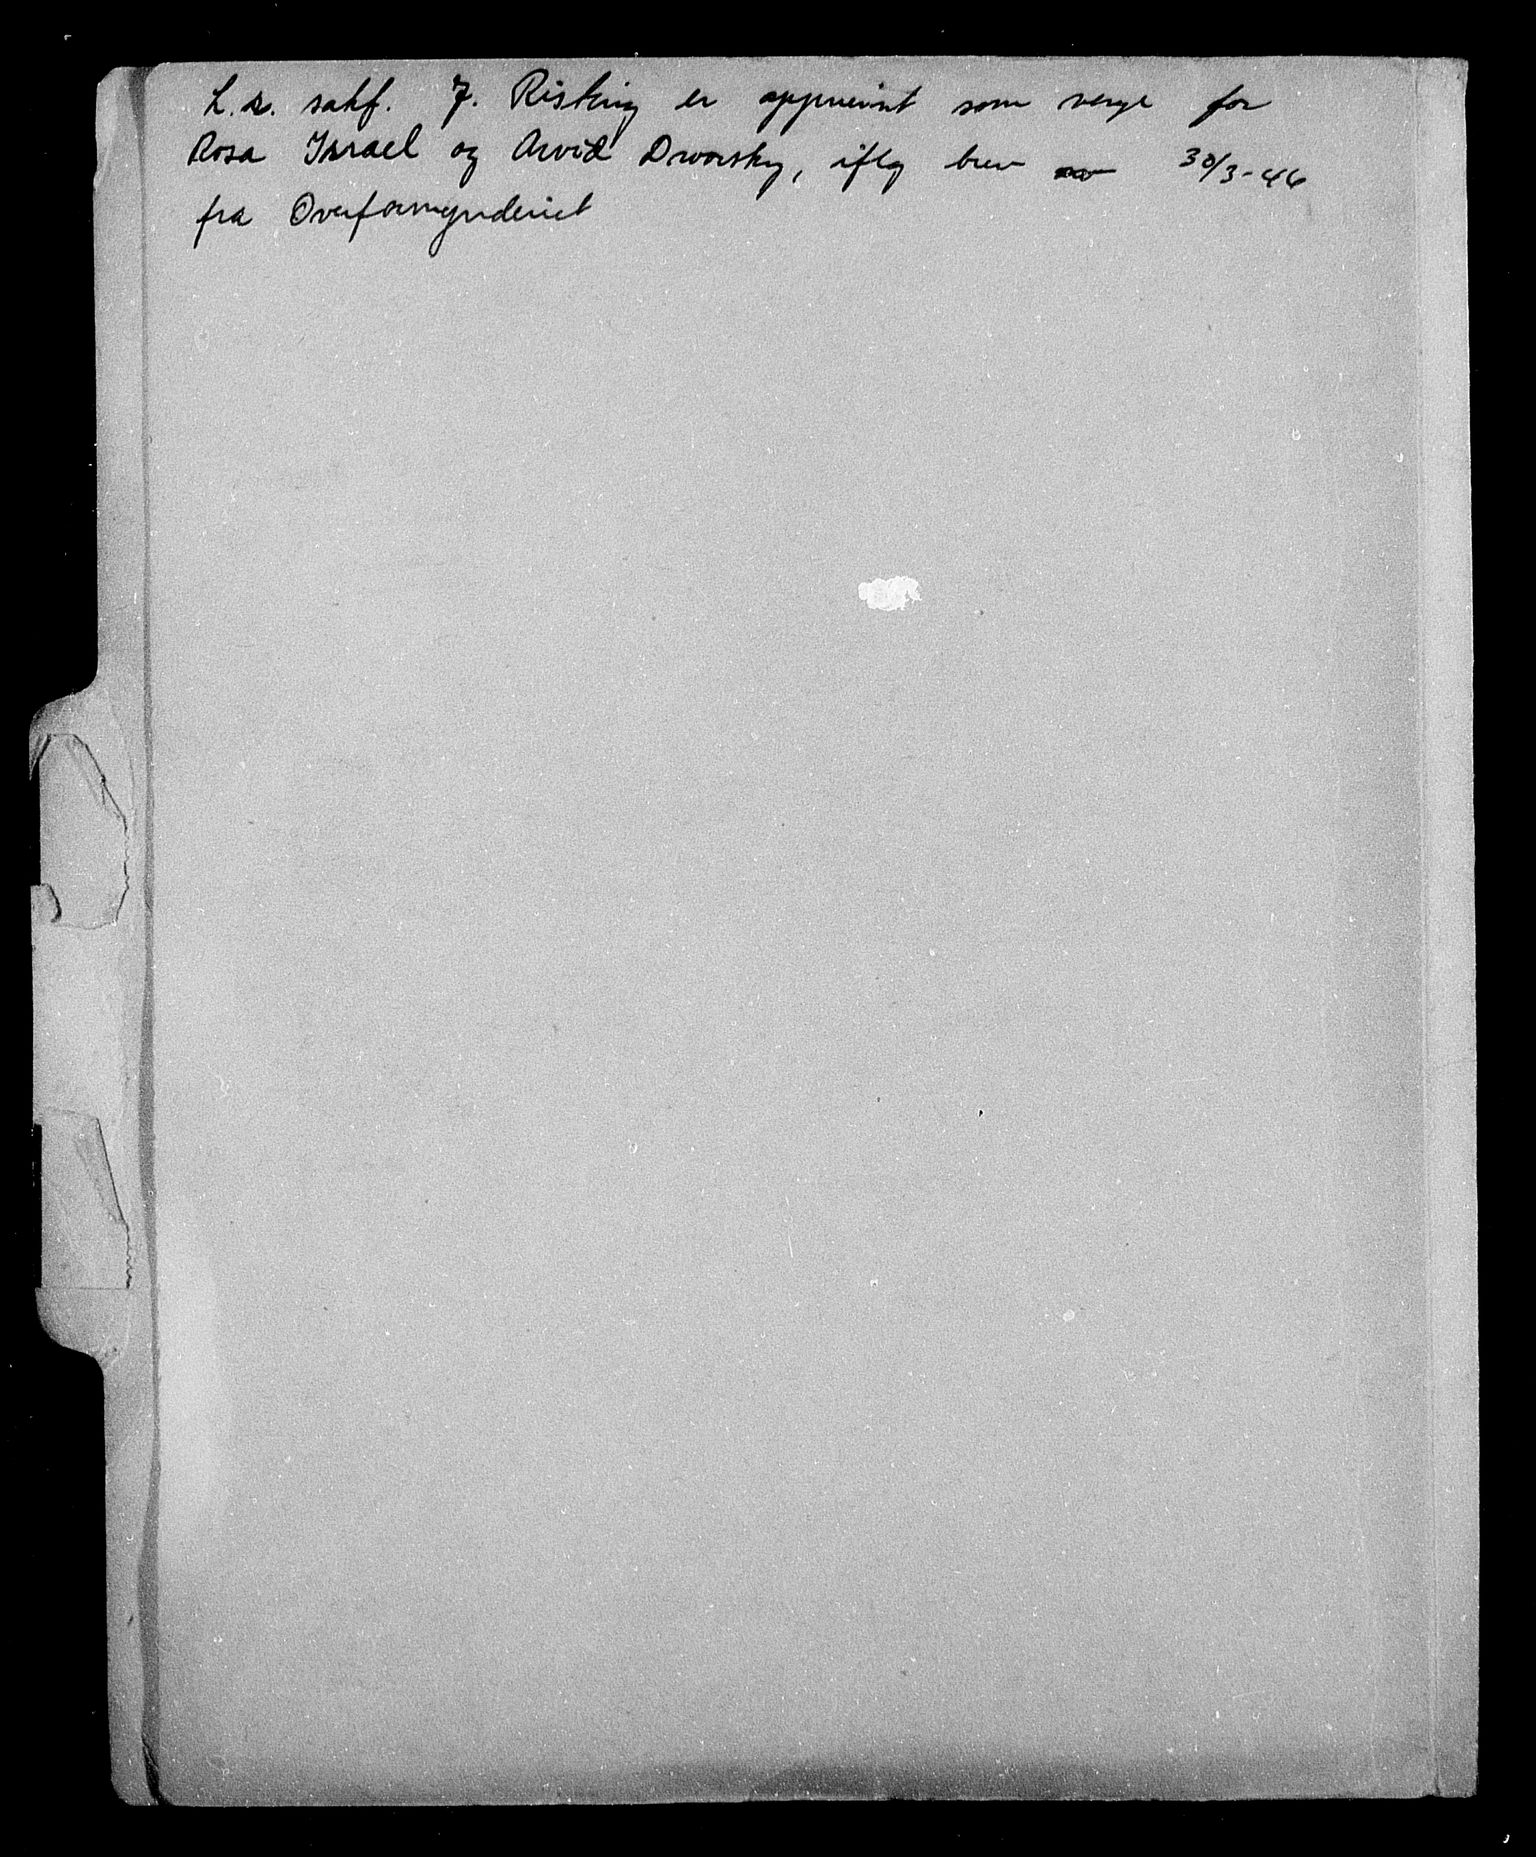 L.r. sakf. F. Risting er oppnevnt som verge for
Rosa Israel og Arvid Dworsky, iflg brev av 30/3-46
fra Overformynderiet